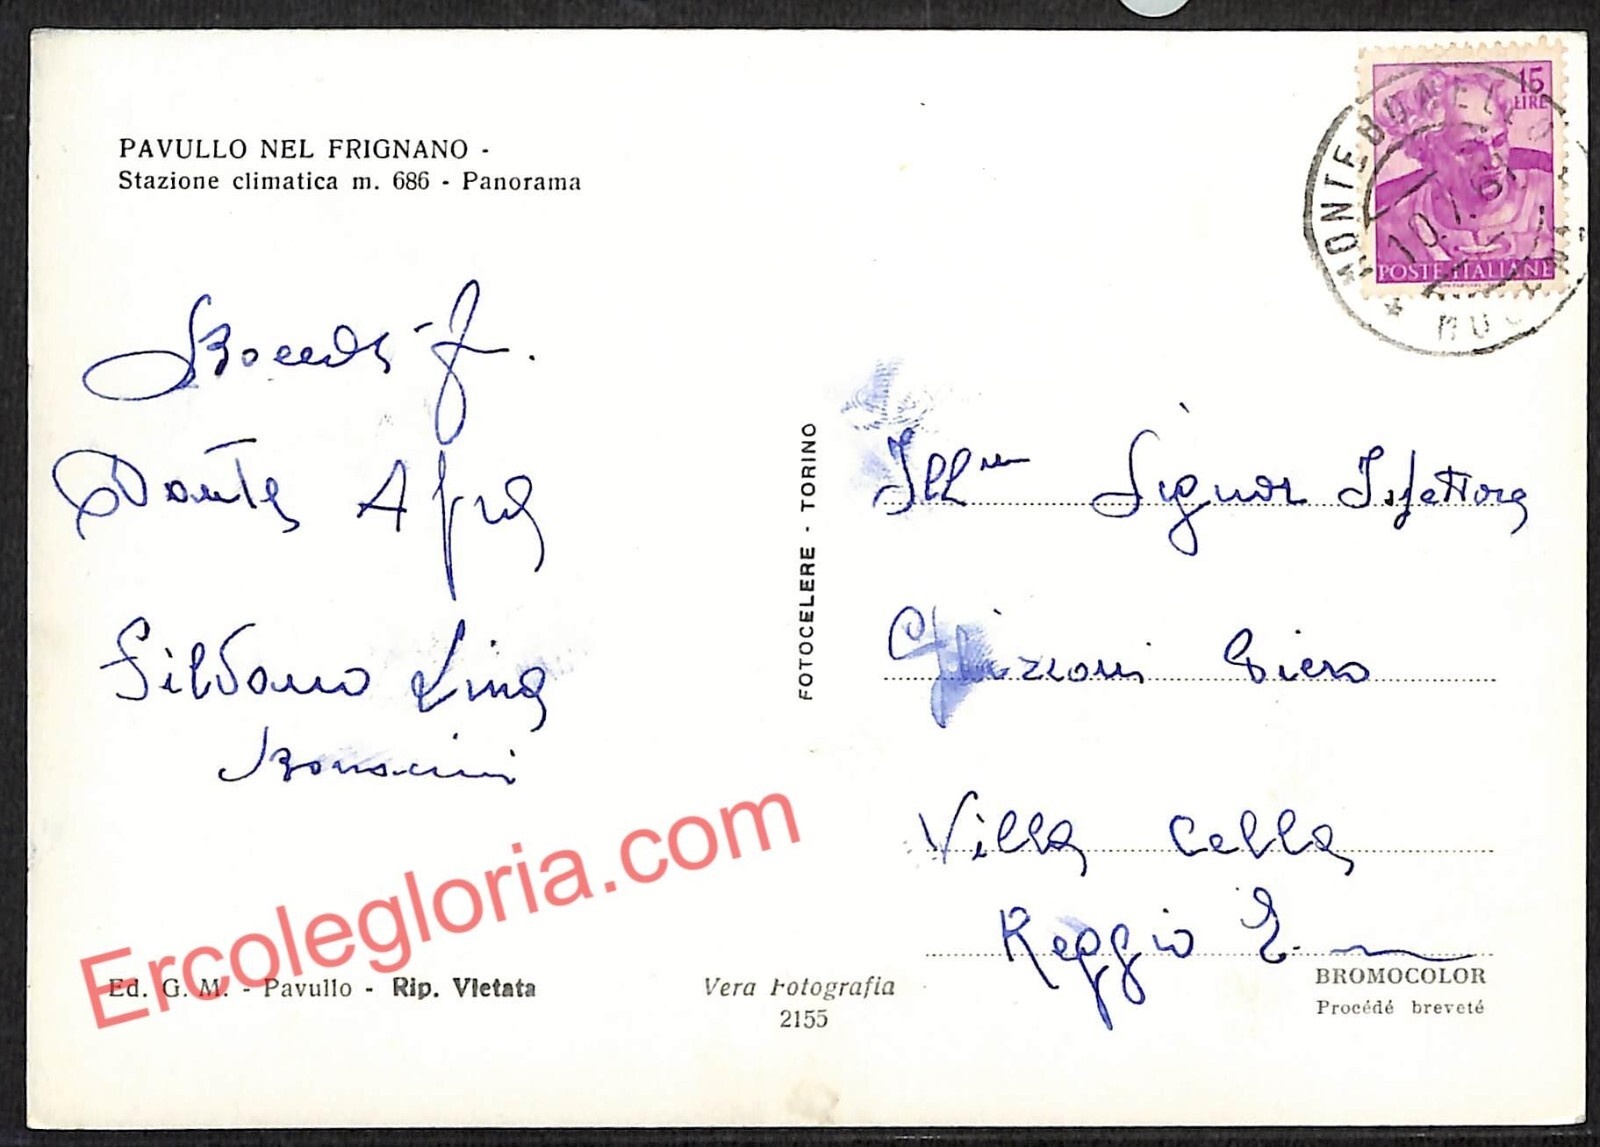 PAVULLO NEL FRIGNANO -
Stazione climatica m. 686 - Panorama
15
LIRE
POSTE ITALIANE
MONTEBONELLO
10.7.6
Dante Afra
Silvano Lina
FOTOCELERE - TORINO
Ill.mo Signor Ispettore
Ghizzoni Piero
Villa Cella
Reggio E.
Ercolegloria.com
Ed. G. M. - Pavullo - Rip. Vietata
Vera Fotografia
2155
BROMOCOLOR
Procédé breveté